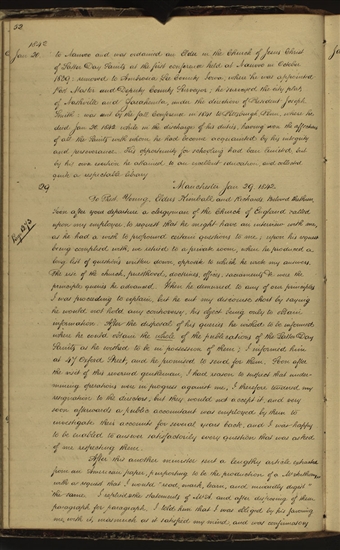 52
1842
Jan 20. to Nauvoo and was ordained an Elder in the Church of Jesus Christ
of Latter Day Saints at the first conference held at Nauvoo in October
1839; removed to Ambrosia Lee County Iowa, where he was appointed
Post Master and Deputy County Surveyor; he surveyed the city plats
of Nashville and Zarahemla, under the direction of President Joseph
Smith; was sent by the fall Conference in 1841 to Pittsburgh Penn, where he
died Jan. 20. 1842 while in the discharge of his duties, having won the affections
of all the Saints with whom he had become acquainted by his integrity
and perseverance. His opportunity for schooling had been limited, but
by his own exertion he attained to an excellent education, and collected
quite a respectable library
29 Manchester Jan 29, 1842.
To Prest Young, Elders Kimball, and Richards Beloved Brethren,
Soon after your departure a clergyman of the Church of England called
upon my employer to request that he might have an interview with me,
as he had a wish to propound certain questions to me; upon his request
being complied with, we retired to a private room, when he produced a
long list of questions written down, opposite to which he wrote my answers.
The rise of the church, priesthood, doctrines, offices, sacraments &c. was the
principle queries he advanced. When he demurred to any of our principles
I was proceeding to explain, but he cut my discourse short by saying
he would not hold any controversy, his object being only to obtain
information After the disposal of his queries he wished to be informed
where he could obtain the whole of the publications of the Latter Day
Saints as he wished to be in possession of them; I informed him
at 47 Oxford Street, and he promised to send for them. Soon after
the visit of this reverend gentleman, I had reason to suspect that under-
mining operations were in progress against me; I therefore tendered my
resignation to the directors; but they would not accept it, and very
soon afterwards a public accountant was employed by them to
investigate their accounts for several years back, and I was happy
to be enabled to answer satisfactorily every question that was asked
of me respecting them.
After this another minister sent a lengthy article extracted
from an American paper, purporting to be the production of a
with as request that I would "read, mark, learn, and inwardly digest"
the same. I replied the statements of and after disposing of them
paragraph for paragraph. I told him that I was obliged by his favoring
me with it, inasmuch as it satisfied my mind, and was confirmatory